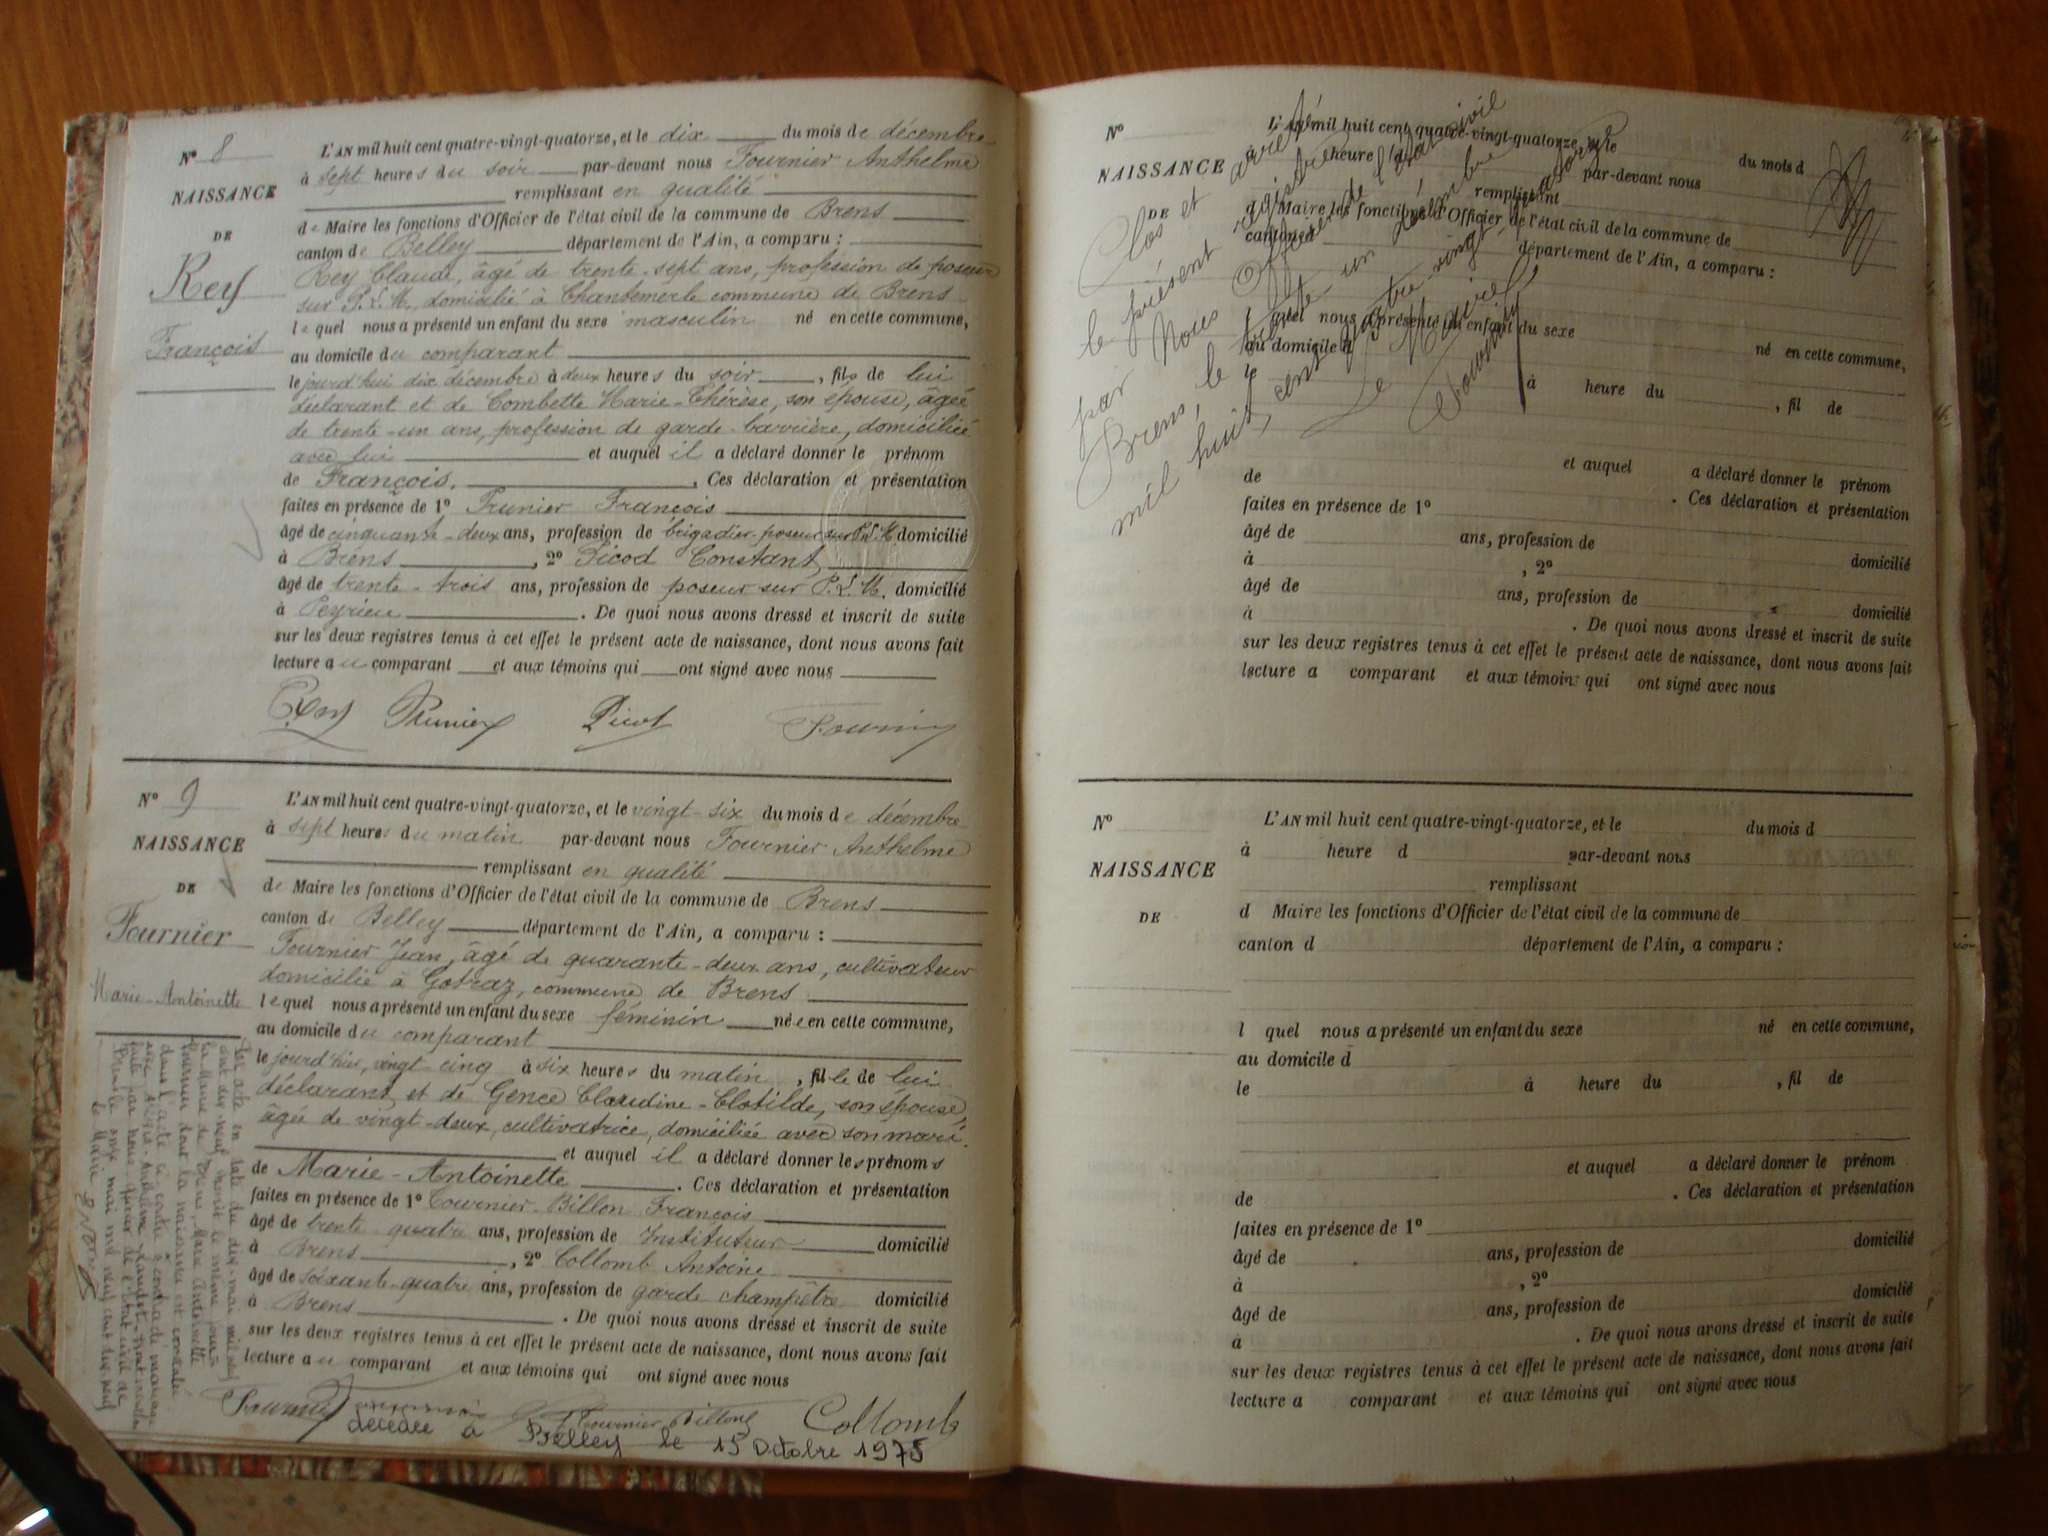 N° 8
NAISSANCE
DE
Rey
François
L'AN mil huit cent quatre-vingt-quatorze, et le dix du mois de décembre
à sept heures du soir par-devant nous Fournier Anthelme
remplissant en qualité
de Maire les fonctions d'Officier de l'état civil de la commune de Brens
canton de Belley département de l'Ain, a comparu :
Rey Claude, âgé de trente-sept ans, profession de poseur
sur P.L.M., domicilié à Chantemerle commune de Brens
lequel nous a présenté un enfant du sexe masculin né en cette commune,
au domicile du comparant
le jourd'hui dix décembre à deux heures du soir, fils de lui
déclarant et de Combette Marie-Thérèse, son épouse, âgée
de trente-un ans, profession de garde-barrière, domiciliée
avec lui et auquel il a déclaré donner le prénom
de François. Ces déclaration et présentation
faites en présence de 1° Prunier François
âgé de cinquante-deux ans, profession de brigadier-poseur sur P.L.M domicilié
à Brens, 2° Picod Constant
âgé de trente-trois ans, profession de poseur sur P.L.M. domicilié
à Peyrieu. De quoi nous avons dressé et inscrit de suite
sur les deux registres tenus à cet effet le présent acte de naissance, dont nous avons fait
lecture au comparant et aux témoins qui ont signé avec nous
Rey Prunier Picot Fournier
N° 9
NAISSANCE
DE
Fournier
Marie-Antoinette
L'AN mil huit cent quatre-vingt-quatorze, et le vingt-six du mois de décembre
à sept heures du matin par-devant nous Fournier Anthelme
remplissant en qualité
de Maire les fonctions d'Officier de l'état civil de la commune de Brens
canton de Belley département de l'Ain, a comparu :
Fournier Jean, âgé de quarante-deux ans, cultivateur
domicilié à Gotraz, commune de Brens
lequel nous a présenté un enfant du sexe féminin née en cette commune,
au domicile du comparant
le jourd'hui, vingt cinq à six heures du matin, fille de lui
déclarant et de Gence Claudine-Clotilde, son épouse,
âgée de vingt-deux, cultivatrice, domiciliée avec son mari.
et auquel il a déclaré donner les prénoms
de Marie-Antoinette. Ces déclaration et présentation
faites en présence de 1° Tournier-Billon François
âgé de trente quatre ans, profession de Instituteur domicilié
à Brens, 2° Collomb Antoine
âgé de soixante-quatre ans, profession de garde champêtre domicilié
à Brens. De quoi nous avons dressé et inscrit de suite
sur les deux registres tenus à cet effet le présent acte de naissance, dont nous avons fait
lecture au comparant et aux témoins qui ont signé avec nous
Fournier Tournier Billon Collomb
décédée à Belley le 15 Octobre 1975
Par acte en date du dix mai mil neuf
cent dix neuf
la Mairie de Brens, Marie Antoinette
Fournier dont la naissance est constatée
dans l'acte ci contre a contracté mariage
avec
faite par nous officier de l'état civil de
Brens le onze mai mil neuf cent dix neuf
Le Maire
Clos et arrêté
le présent registre
par Nous Officier de l'état civil
Brens, le trente-un décembre
mil huit cent quatre-vingt-quatorze
Le Maire
Fournier
N°
NAISSANCE
DE
L'AN mil huit cent quatre-vingt-quatorze, et le du mois d
à heure d par-devant nous
remplissant
d Maire les fonctions d'Officier de l'état civil de la commune de
canton d département de l'Ain, a comparu :
l quel nous a présenté un enfant du sexe né en cette commune,
au domicile d
le à heure du , fil de
et auquel a déclaré donner le prénom
de . Ces déclaration et présentation
faites en présence de 1°
âgé de ans, profession de domicilié
à , 2°
âgé de ans, profession de domicilié
à . De quoi nous avons dressé et inscrit de suite
sur les deux registres tenus à cet effet le présent acte de naissance, dont nous avons fait
lecture a comparant et aux témoins qui ont signé avec nous
N°
NAISSANCE
DE
L'AN mil huit cent quatre-vingt-quatorze, et le du mois d
à heure d par-devant nous
remplissant
d Maire les fonctions d'Officier de l'état civil de la commune de
canton d département de l'Ain, a comparu :
l quel nous a présenté un enfant du sexe né en cette commune,
au domicile d
le à heure du , fil de
et auquel a déclaré donner le prénom
de . Ces déclaration et présentation
faites en présence de 1°
âgé de ans, profession de domicilié
à , 2°
âgé de ans, profession de domicilié
à . De quoi nous avons dressé et inscrit de suite
sur les deux registres tenus à cet effet le présent acte de naissance, dont nous avons fait
lecture a comparant et aux témoins qui ont signé avec nous